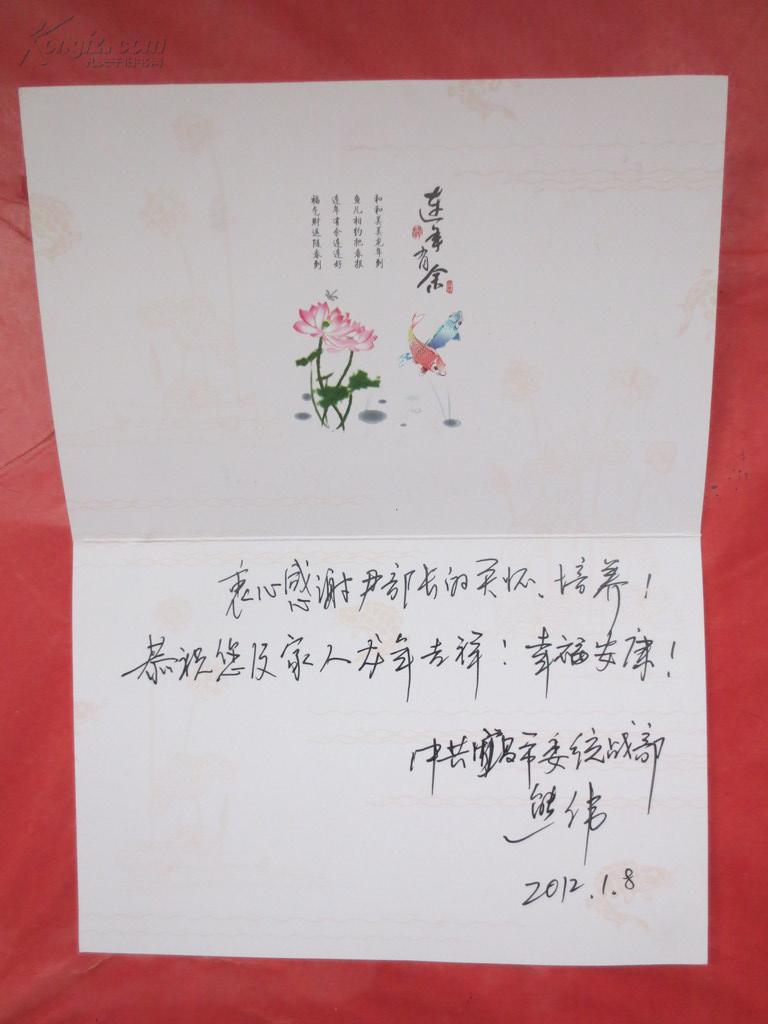 Kongfz.com
孔夫子旧书网
连年有余
和和美美龙年到
鱼儿相约把春报
连年有余连连好
福气财运随春到
衷心感谢尹部长的关怀、培养！
恭祝您及家人龙年吉祥！幸福安康！
中共宜昌市委统战部
熊伟
2012.1.8